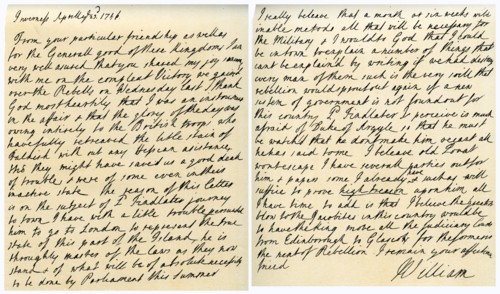 Inverness April 23d 1746
From your particular friendship as well as
for the Generall good of these Kingdoms I am
very well assured that you shared my joy
with me on the compleat Victory we gained
over the Rebells on Wednesday last I thank
God most heartily that I was an
in the affair & that the glory of the day was
owing entirely to the British troops who
have fully retrieved the little stain of
Falkirk with out any Hessian assistance
tho' they might have saved us a good deal
of trouble & were of some even in their
inactive state. The reason of this letter
is on the subject of Ld Findlaters journey
to town I have with a little trouble persuaded
him to go to London to represent the true
state of this part of the Island, he is
thoroughly master of the laws as they now
stand & of what will be of absolute necessity
to be done by Parliament this summer
I really beleave that a month or six weeks will
enable me to do all that will be necessary for
the Military & I would to God that I could
be in town to explain a number of things that
cant be explain'd by writing if we had destroy'd
every man of them such is the very soil that
rebellion would sprout out again if a new
system of government is not found out for
this country. Ld Findlater I perceive is much
afraid of Duke of Argyle so that he must
be watch'd that he dont make him
he has said some. I beleave old Lovat
wont escape I have severall parties out for
him & papers some I already have such as will
suffice to prove high treason upon him all
I have time to add is that I beleave the greatest
blow to the Jacobites in this country would be
to have the king move all the Judiciary Courts
from Edinbourgh to Glasgow for the former is
the neast of Rebellion I remain your affectionate
friend
William